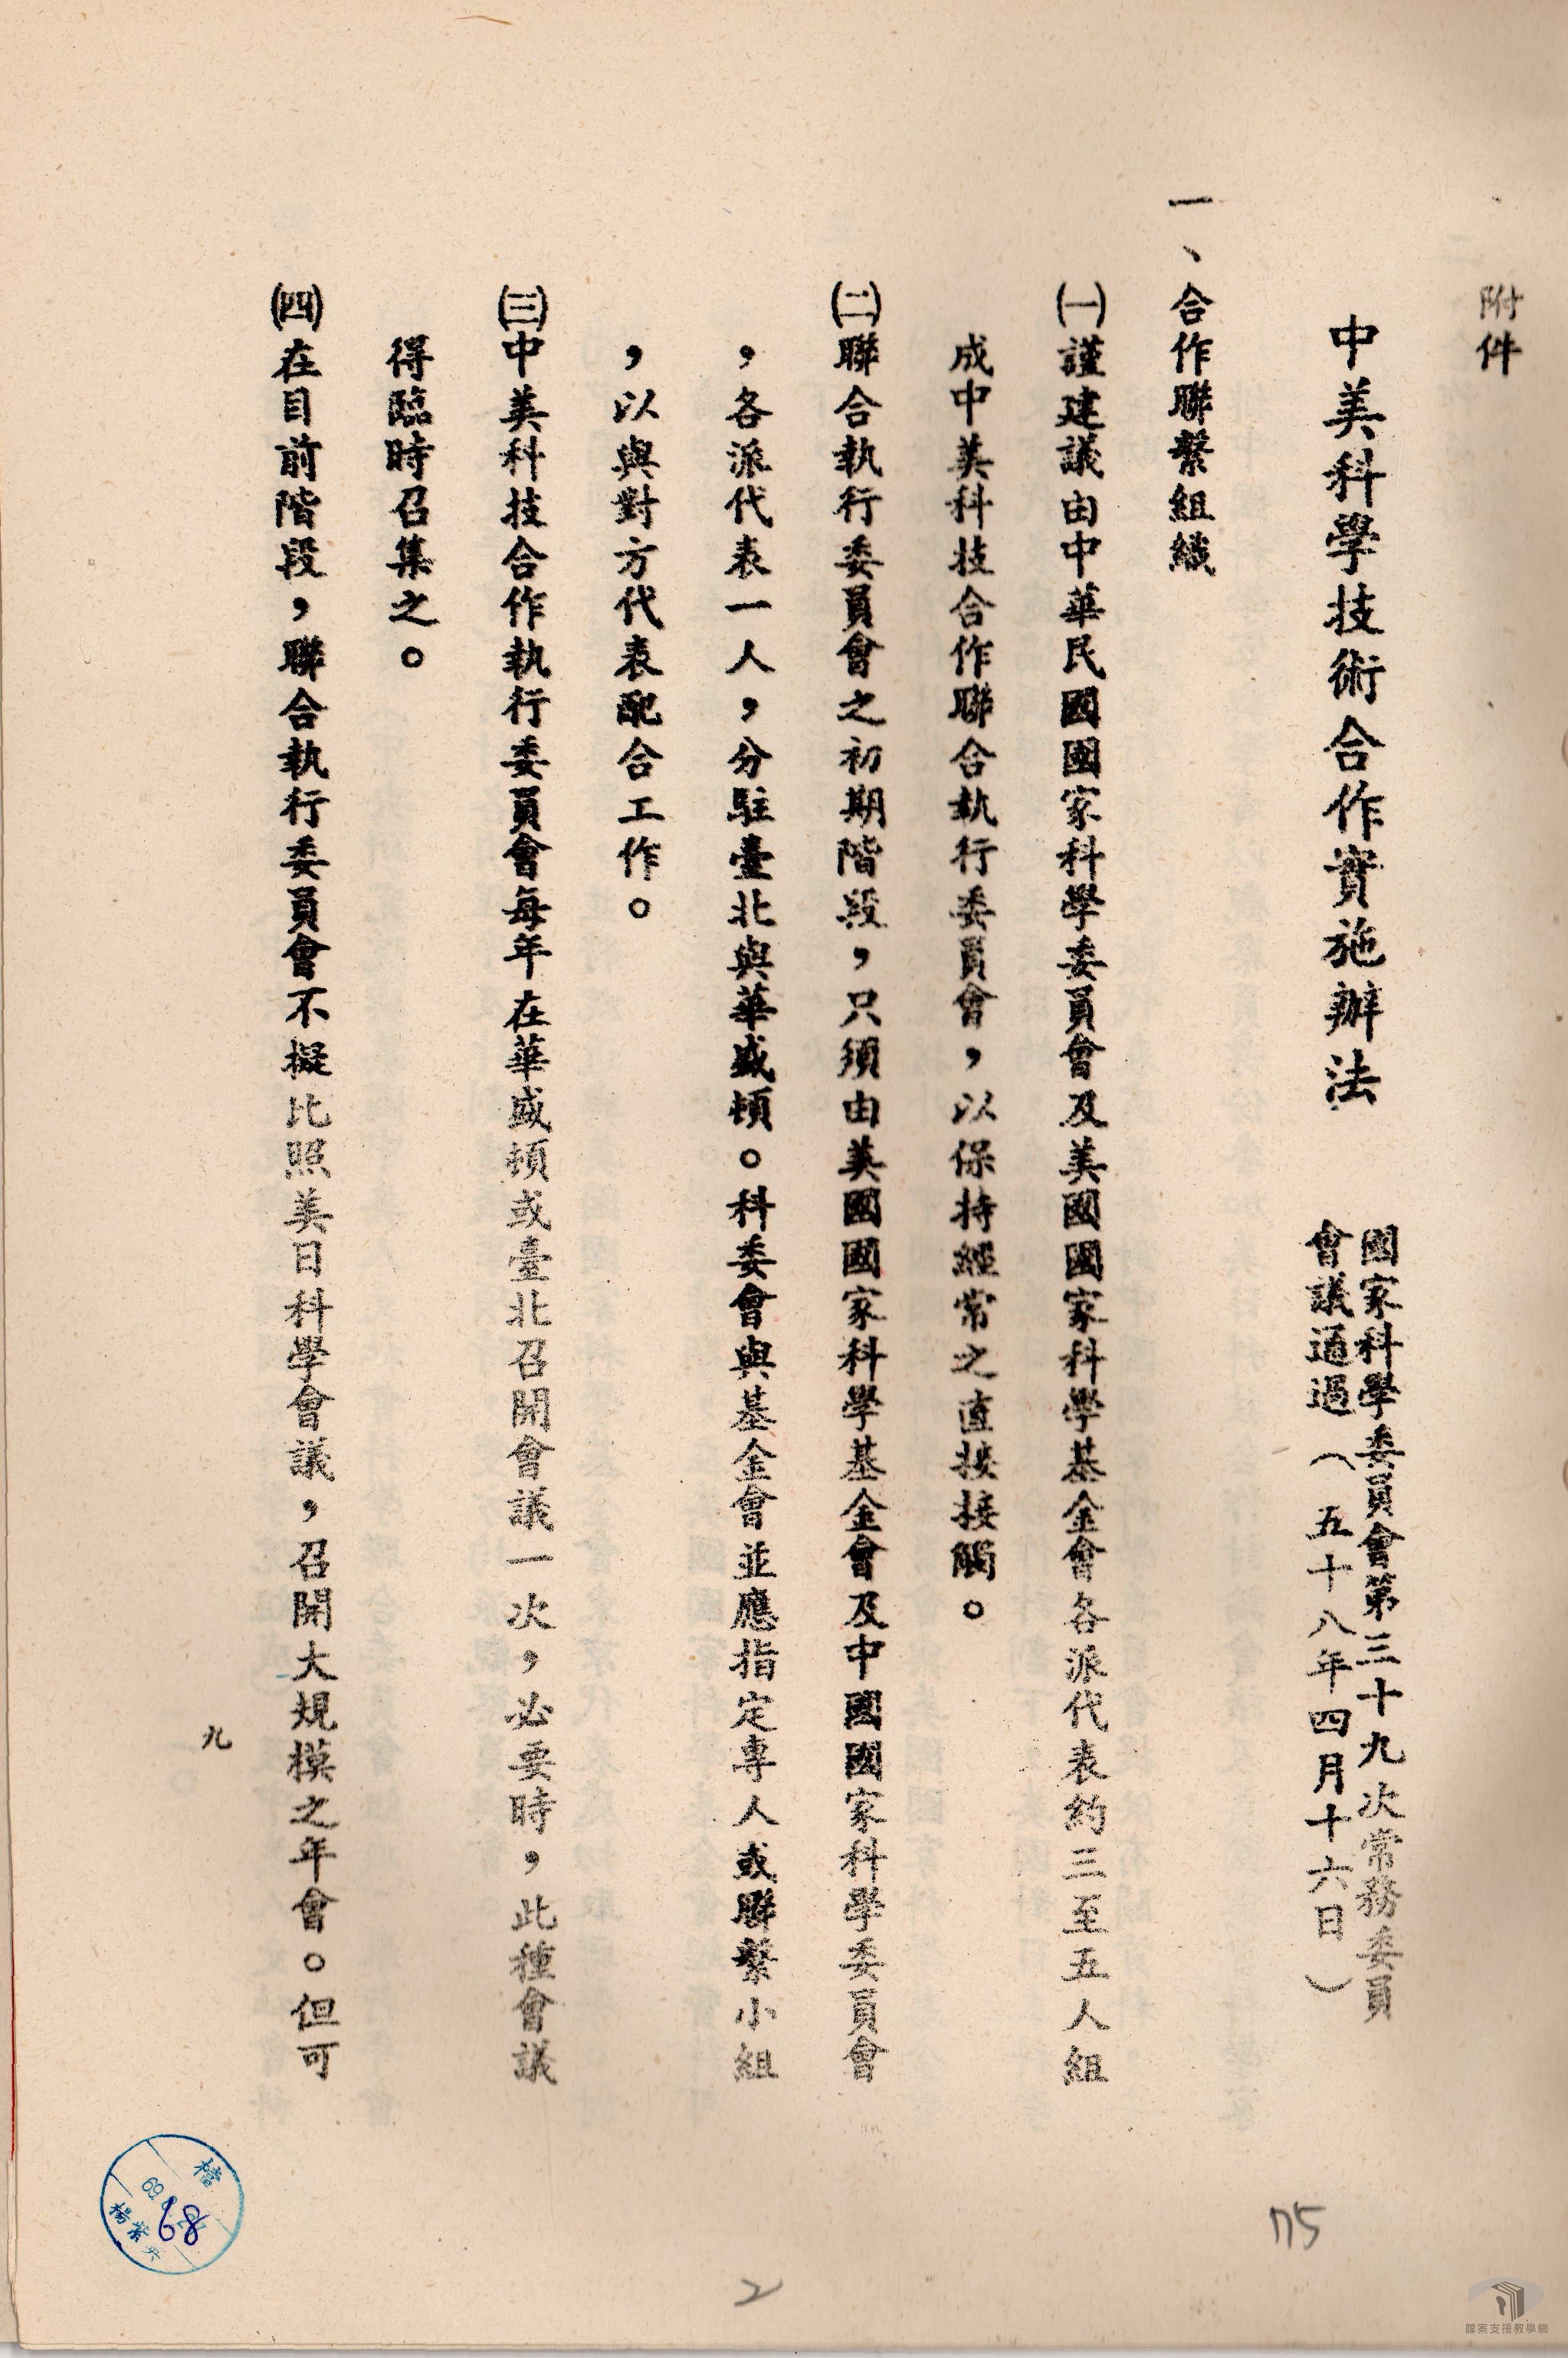 附件
中美科學技術合作實施辦法
國家科學委員會第三十九次常務委員
會議通過（五十八年四月十六日）
一、合作聯繫組織
㈠謹建議由中華民國國家科學委員會及美國國家科學基金會各派代表約三至五人組
成中美科技合作聯合執行委員會，以保持經常之直接接觸。
㈡聯合執行委員會之初期階段，只須由美國國家科學基金會及中國國家科學委員會
，各派代表一人，分駐臺北與華盛頓。科委會與基金會並應指定專人或聯繫小組
，以與對方代表配合工作。
㈢中美科技合作執行委員會每年在華盛頓或臺北召開會議一次，必要時，此種會議
得臨時召集之。
㈣在目前階段，聯合執行委員會不擬比照美日科學會議，召開大規模之年會。但可
九
檔
68
175
2
檔案支援教學網